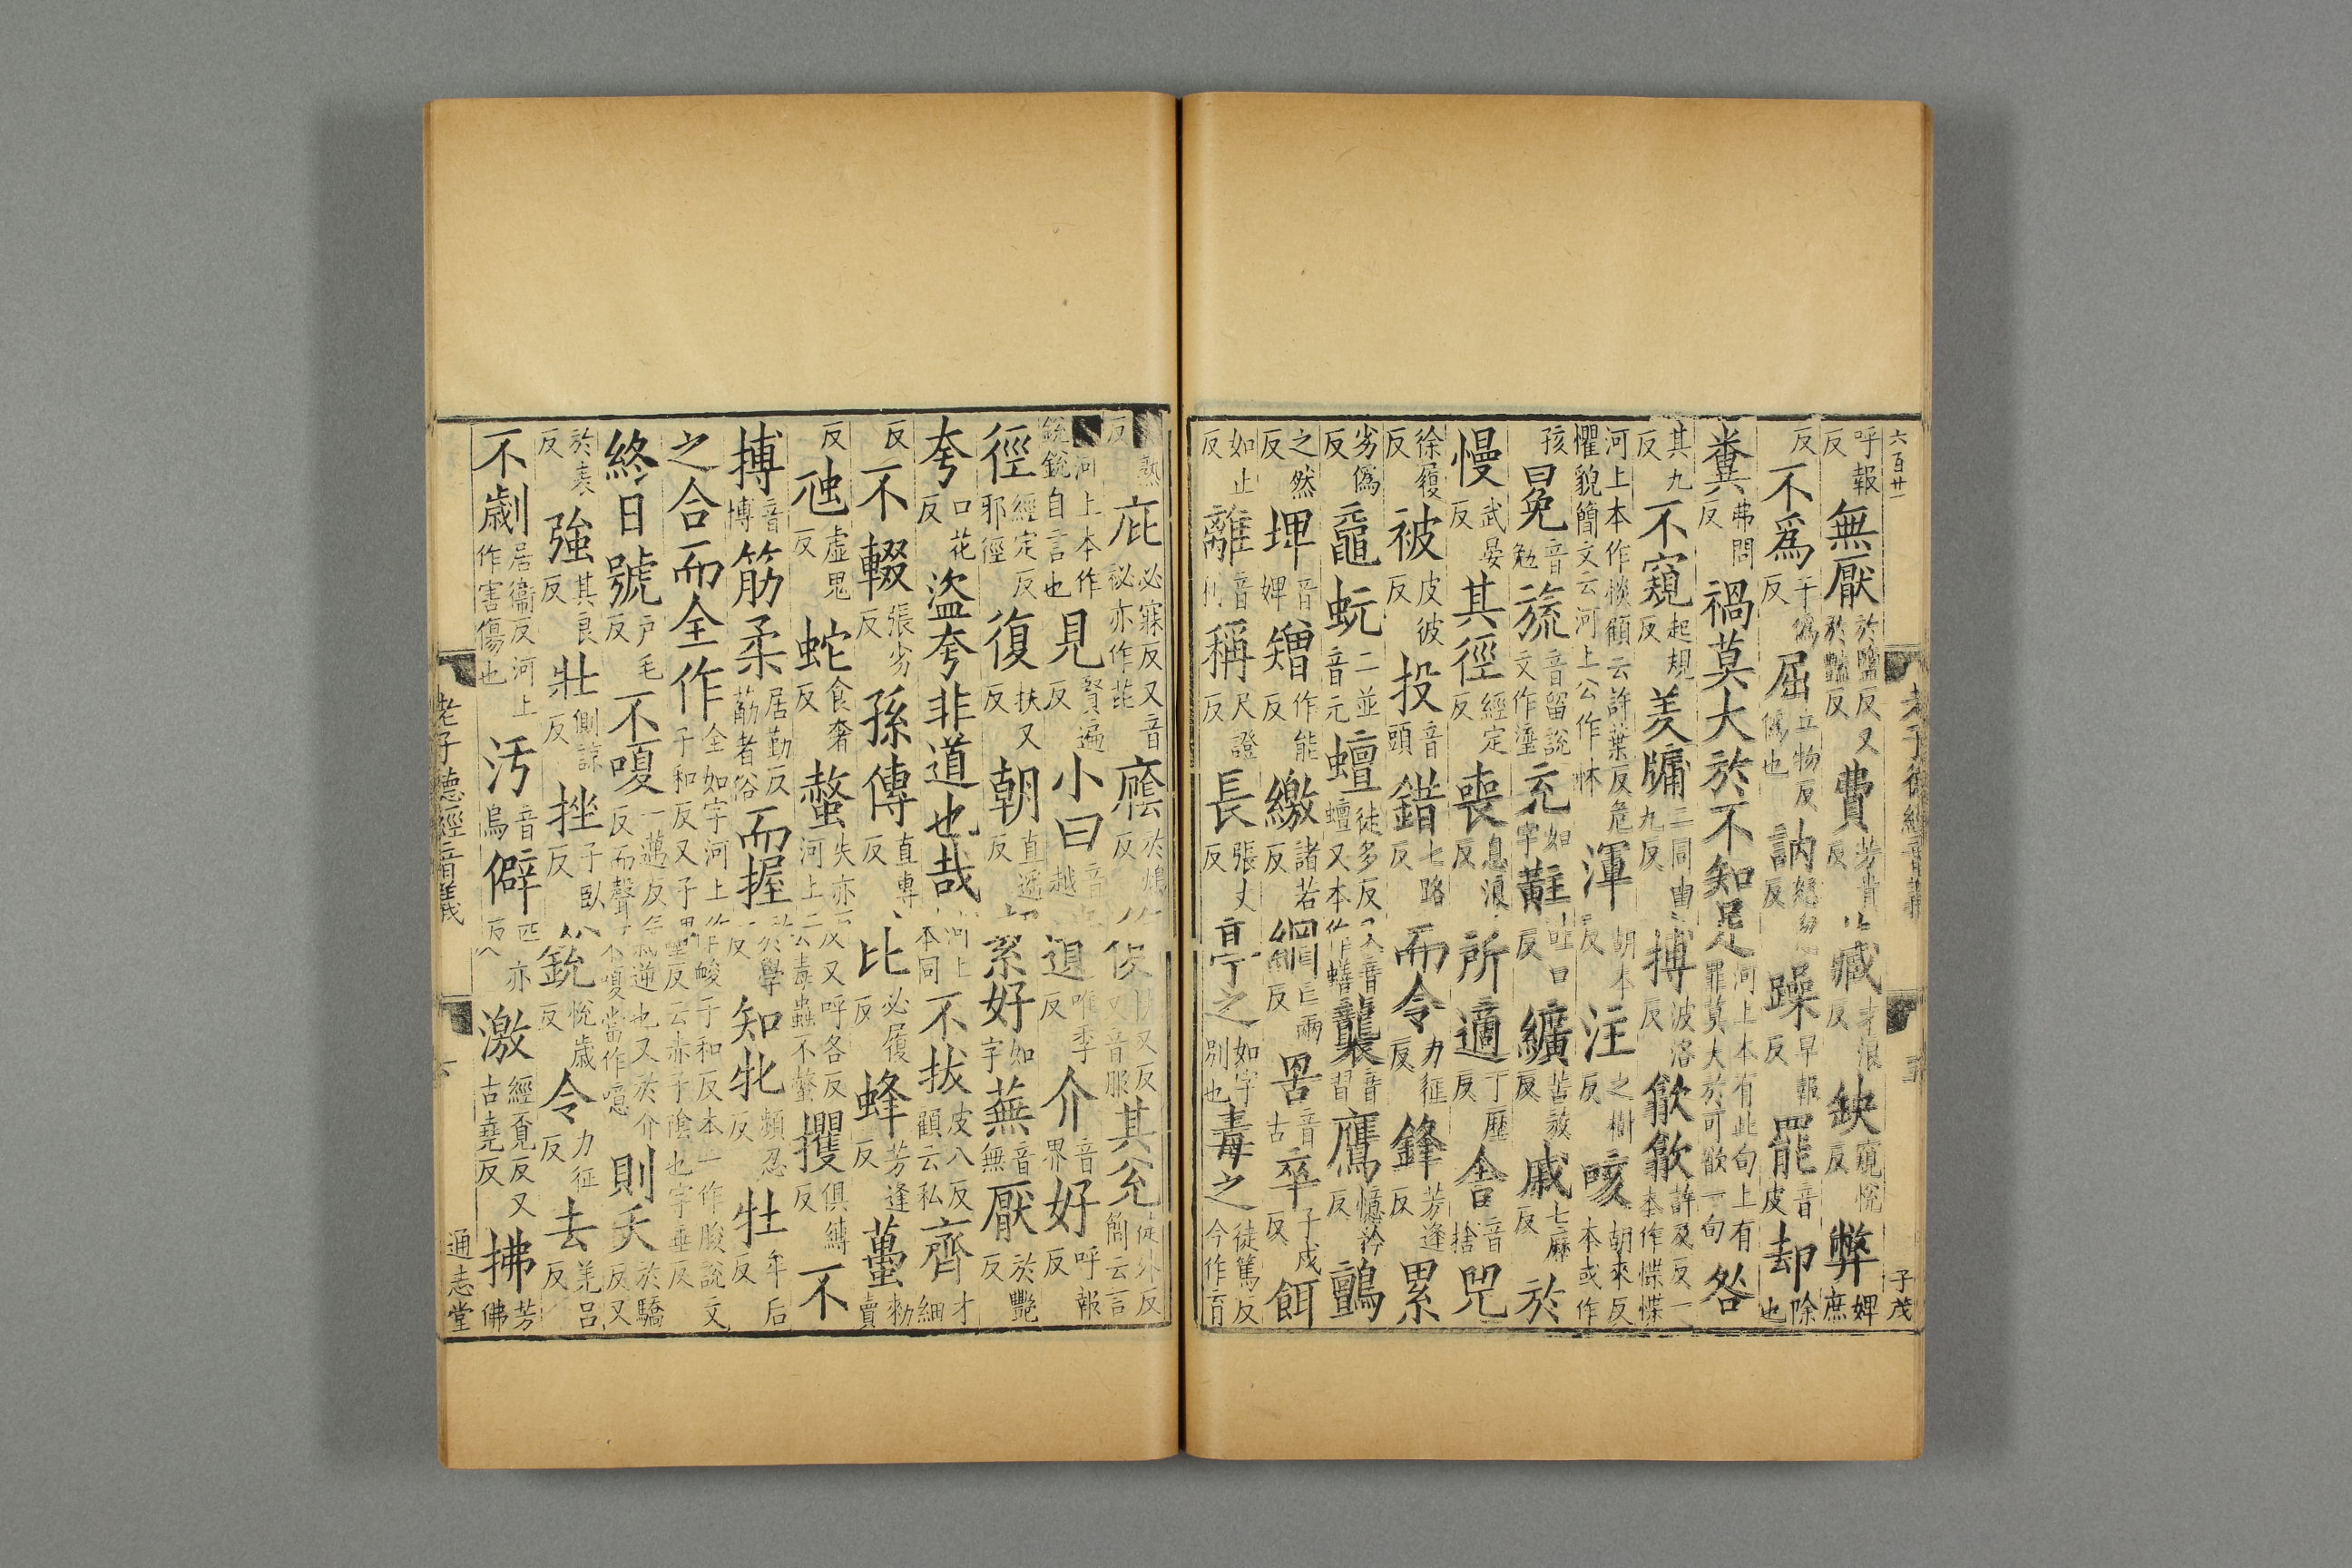 六百廿 老子德經音義 五 子茂
呼報反 無厭 於鹽反又於豔反 費 芳貴反 藏 才浪反 缺 窺悅反 弊 婢庶
反 不爲 于僞反 屈 丘物反 也 訥 反 躁 早報反 罷 音皮 却 除也
糞 弗問反 禍莫大於不知足 河上本有此句上有罪莫大於可欲一句 咎
其九反 不窺 起規反 羑牖 二同由九反 搏 波洛反 歙歙 許及反一本作惵惵
河上本作惔顧云許葉反危懼貌簡文云河上公作怵 渾 胡本反 注 之樹反 咳 胡來反本或作
孩 㒵 音勉 旒 音留說文作瑬 充 如字 黈 吐口反 纊 苦放反 戚 七歷反 於
慢 武晏反 其徑 經定反 喪 息浪反 所適 丁歷反 舍 音捨 兕
徐履反 被 皮彼反 投 音頭 錯 七路反 而令 力征反 鋒 芳逢反 累
劣僞反 黿蚖 二並音元 蟺 徒多反又音蟺本作蟮 襲 音習 鷹 憶衿反 鸇
之然反 埤 音婢 矰 作能反 繳 諸若反 網 亡兩反 罟 音古 卒 子戍反 餌
如止反 離 音 稱 尺證反 長 張丈反 亭之 如字別也 毒之 徒篤反今作育
熟反 庇 必寐反又音祕亦作茈 廕 於鴆反 復 又反又音服 其兊 徒外反簡云言
河上本作銳銳自言也 見 賢遍反 小曰 音越 遺 唯季反 介 音界 好 呼報反
徑 經定反邪徑 復 扶又反 朝 直遙反 絜好 如字 蕪 音無 厭 於豔反
夸 口花反 盜夸非道也哉 河上本同 不拔 皮八反顧云私 齊 才細
反 不輟 張劣反 孫傳 直專反 比 必履反 蜂 芳逢反 蠆 勑賣
反 虺 虛鬼反 蛇 食奢反 螫 失亦反又呼各反河上云毒蟲不螫 攫 俱縛反 不
搏 音博 筋柔 居勤反荕者俗 而握 於學反 知牝 頻忍反 牡 牟后反
之合而全作 全如字河上作峻子和反本一作朘說文子和反又子壘反云赤子陰也字垂反
終日號 戶毛反 不嗄 一邁反氣逆也又於介反而聲不嗄當作噫 則夭 於驕反又
於表反 強 其良反 壯 側諒反 挫 子臥反 銳 悅歲反 令 力征反 去 羌呂反
不劌 居衞反河上作害傷也 汚 音烏 僻 匹亦反 激 經覔反又古堯反 拂 芳佛
老子德經音義 六 通志堂